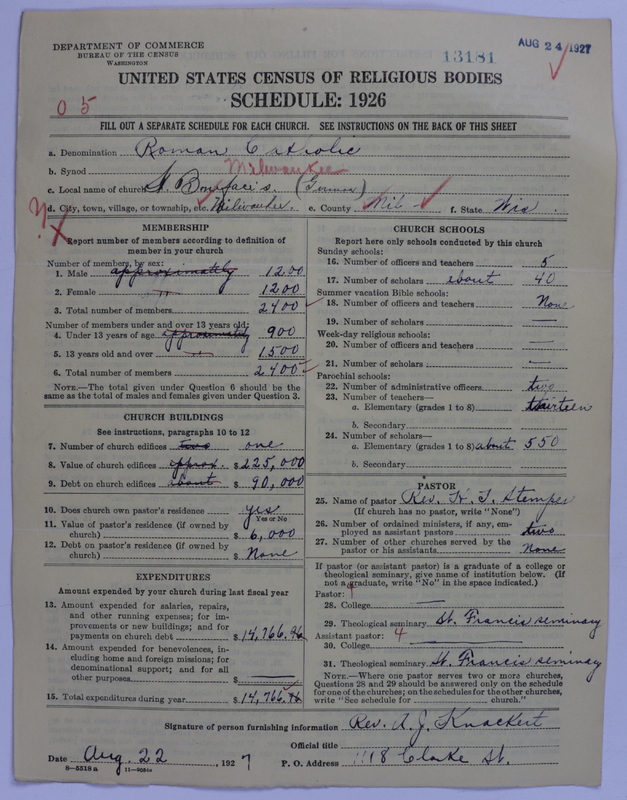 DEPARTMENT OF COMMERCE
BUREAU OF THE CENSUS
WASHINGTON
13181
AUG 24 1927
UNITED STATES CENSUS OF RELIGIOUS BODIES
SCHEDULE: 1926
0 5
FILL OUT A SEPARATE SCHEDULE FOR EACH CHURCH. SEE INSTRUCTIONS ON THE BACK OF THIS SHEET
a. Denomination Roman Catholic
b. Synod Milwaukee
c. Local name of church St. Boniface's (German)
d. City, town, village, or township, etc. Milwaukee. e. County Mil f. State Wis.
MEMBERSHIP
Report number of members according to definition of
member in your church
Number of members, by sex:
1. Male approximately 1200
2. Female 1200
3. Total number of members 2400
Number of members under and over 13 years old:
4. Under 13 years of age approximately 900
5. 13 years old and over 1500
6. Total number of members 2400
NOTE.—The total given under Question 6 should be the
same as the total of males and females given under Question 3.
CHURCH BUILDINGS
See instructions, paragraphs 10 to 12
7. Number of church edifices two one
8. Value of church edifices approx. $225,000
9. Debt on church edifices about $90,000
10. Does church own pastor's residence yes
Yes or No
11. Value of pastor's residence (if owned by
church) $6,000
12. Debt on pastor's residence (if owned by
church) $None
EXPENDITURES
Amount expended by your church during last fiscal year
13. Amount expended for salaries, repairs,
and other running expenses; for im-
provements or new buildings; and for
payments on church debt $14,766.96
14. Amount expended for benevolences, in-
cluding home and foreign missions; for
denominational support; and for all
other purposes $
15. Total expenditures during year $14,766.96
CHURCH SCHOOLS
Report here only schools conducted by this church
Sunday schools:
16. Number of officers and teachers 5
17. Number of scholars about 40
Summer vacation Bible schools:
18. Number of officers and teachers None
19. Number of scholars —
Week-day religious schools:
20. Number of officers and teachers —
21. Number of scholars —
Parochial schools:
22. Number of administrative officers two
23. Number of teachers—
a. Elementary (grades 1 to 8) thirteen
b. Secondary
24. Number of scholars—
a. Elementary (grades 1 to 8) about 550
b. Secondary
PASTOR
25. Name of pastor Rev. H. J. Stemper
(If church has no pastor, write "None")
26. Number of ordained ministers, if any, em-
ployed as assistant pastors two
27. Number of other churches served by the
pastor or his assistants None
If pastor (or assistant pastor) is a graduate of a college or
theological seminary, give name of institution below. (If
not a graduate, write "No" in the space indicated.)
Pastor:
28. College —
29. Theological seminary St. Francis seminary
Assistant pastor: 4
30. College
31. Theological seminary St. Francis seminary
NOTE.—Where one pastor serves two or more churches,
Questions 28 and 29 should be answered only on the schedule
for one of the churches; on the schedules for the other churches,
write "See schedule for church."
Signature of person furnishing information Rev. A. J. Knackert
Official title
Date Aug. 22, 1927 P. O. Address 1118 Clarke St.
8—5518a 11—9684a